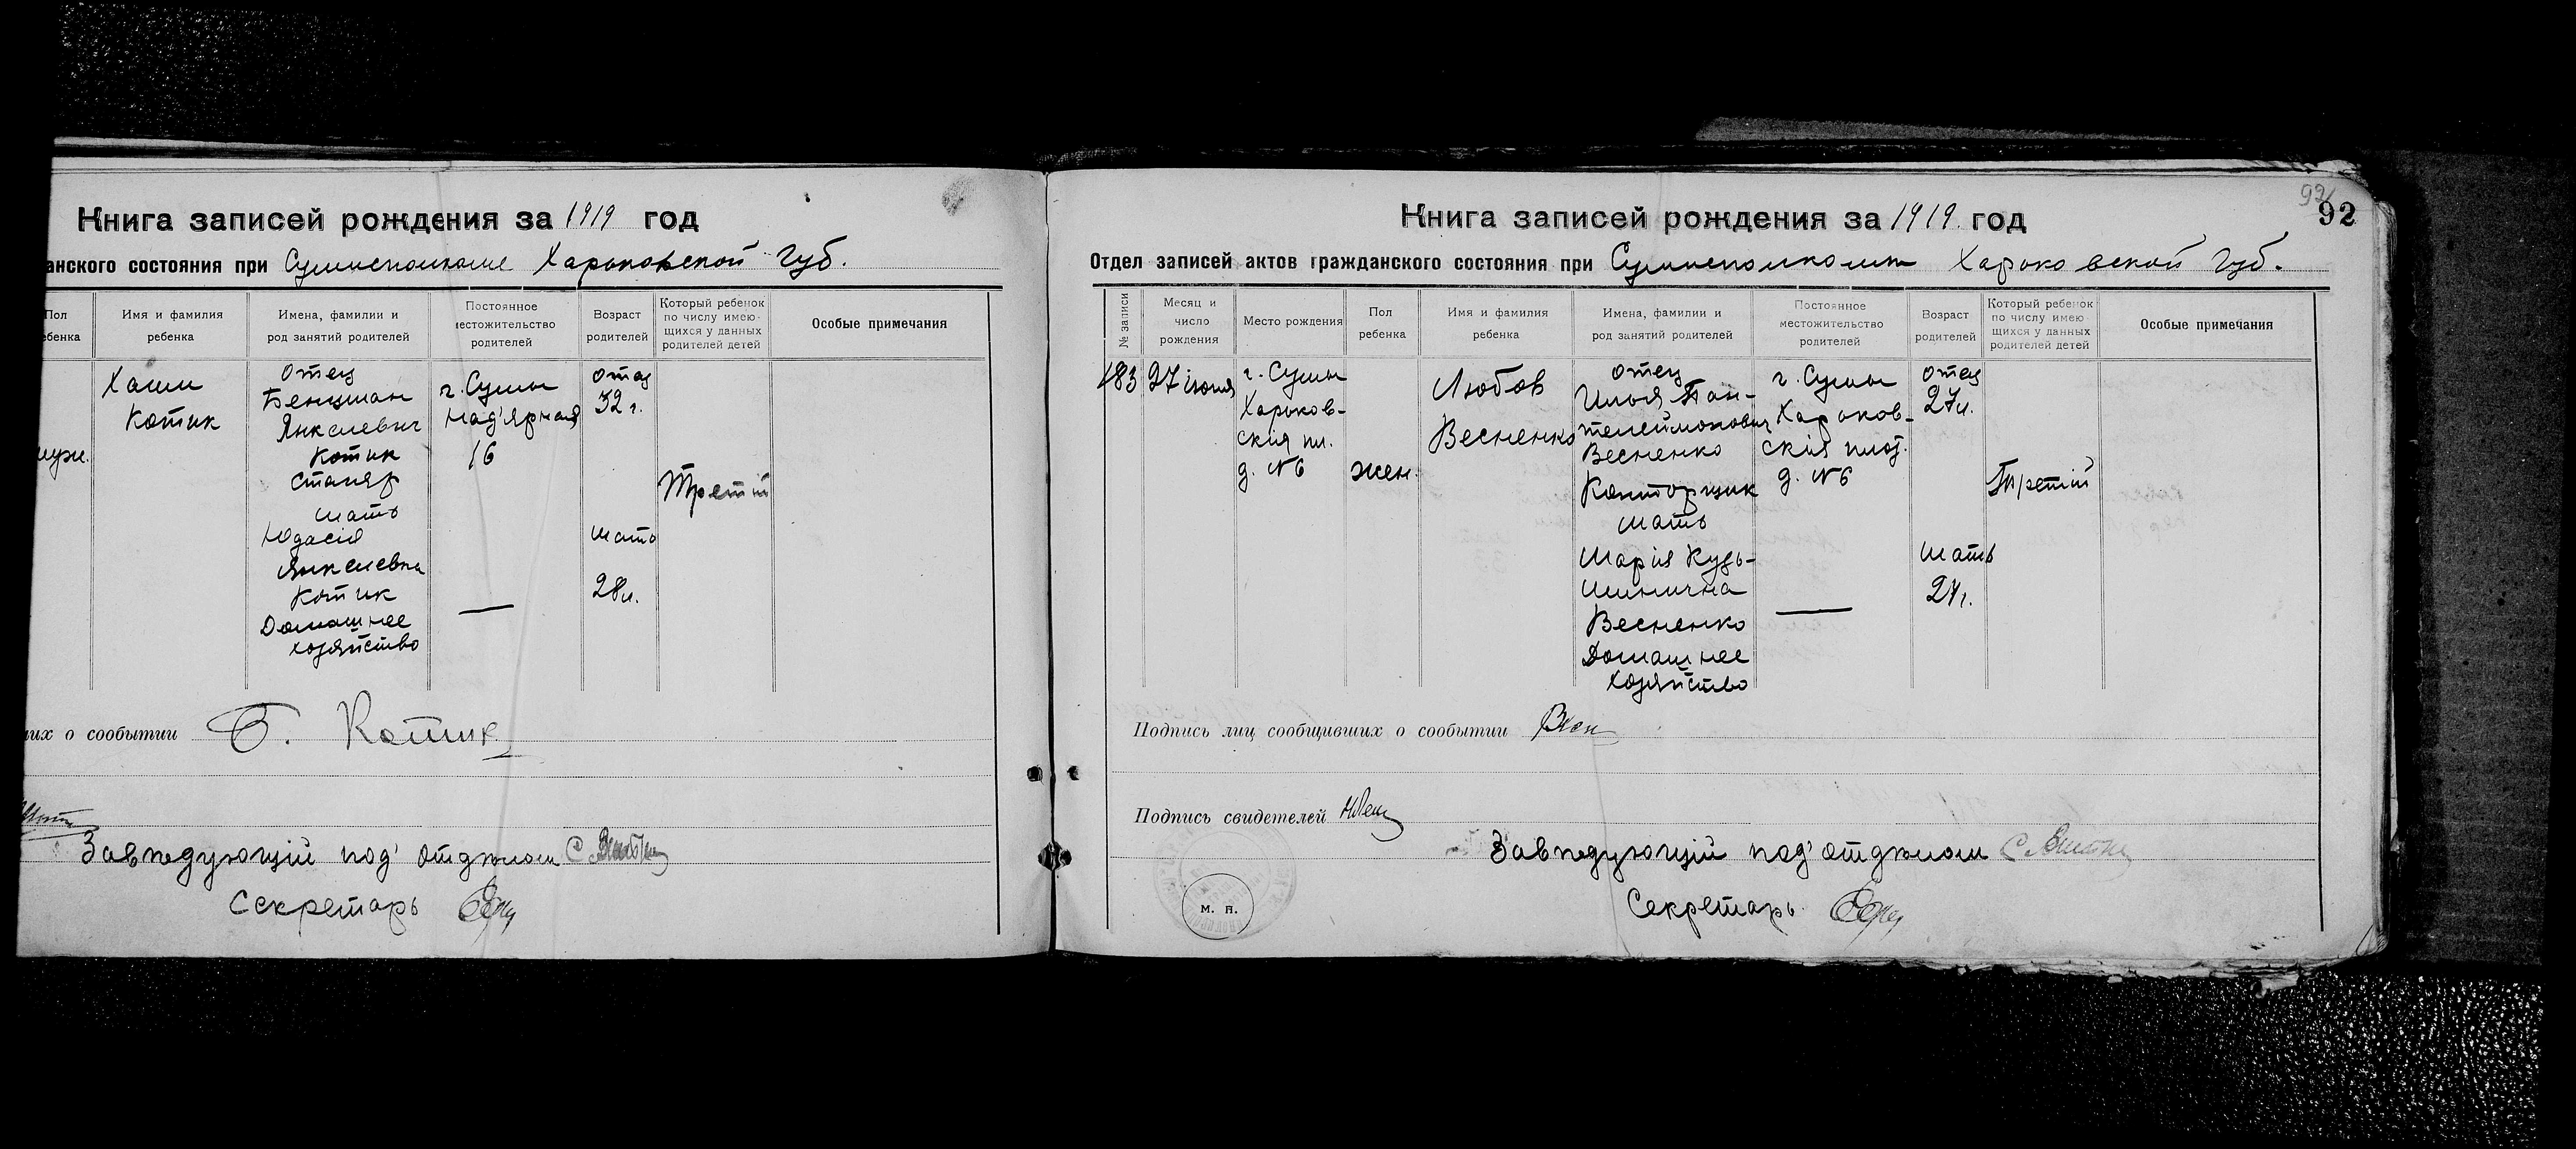 Книга записей рождения за 1919 год
анского состояния при Сумисполкоме Харьковской Губ.
Пол
ебенка
Имя и фамилия
ребенка
Имена, фамилии и
род занятий родителей
Постоянное
местожительство
родителей
Возраст
родителей
Который ребенок
по числу имею-
щихся у данных
родителей детей
Особые примечания
муж.
Хаим
Котик
Отец
Бенцман
Янкелевич
Котик
Столяр
мать
Юдасія
Янкелевна
Котик
Домашнее
хозяйство
г. Сумы
Над'ярная
16
—
Отец
32 г.
мать
28 л.
Третій
их о сообытии Б. Котик
Заведующій под'отделом
Секретарь
92
92
Книга записей рождения за 1919 год
Отдел записей актов гражданского состояния при Сумисполкоме Харьковской Губ.
№ записи
Месяц и
число
рождения
Место рождения
Пол
ребенка
Имя и фамилия
ребенка
Имена, фамилии и
род занятий родителей
Постоянное
местожительство
родителей
Возраст
родителей
Который ребенок
по числу имею-
щихся у данных
родителей детей
Особые примечания
183
27 іюня
г. Сумы
Харьков-
ская пл.
д. №6
жен.
Любов
Весненко
Отец
Илья Пан-
телеймонович
Весненко
Конторщик
мать
Марія Кузь-
минична
Весненко
Домашнее
хозяйство
г. Сумы
Харьков-
ская площ.
д. №6
—
Отец
27 л.
мать
24 г.
Третій
Подпись лиц сообщивших о сообытии
Подпись свидетелей
Заведующій под'отделом
Секретарь
М. П.